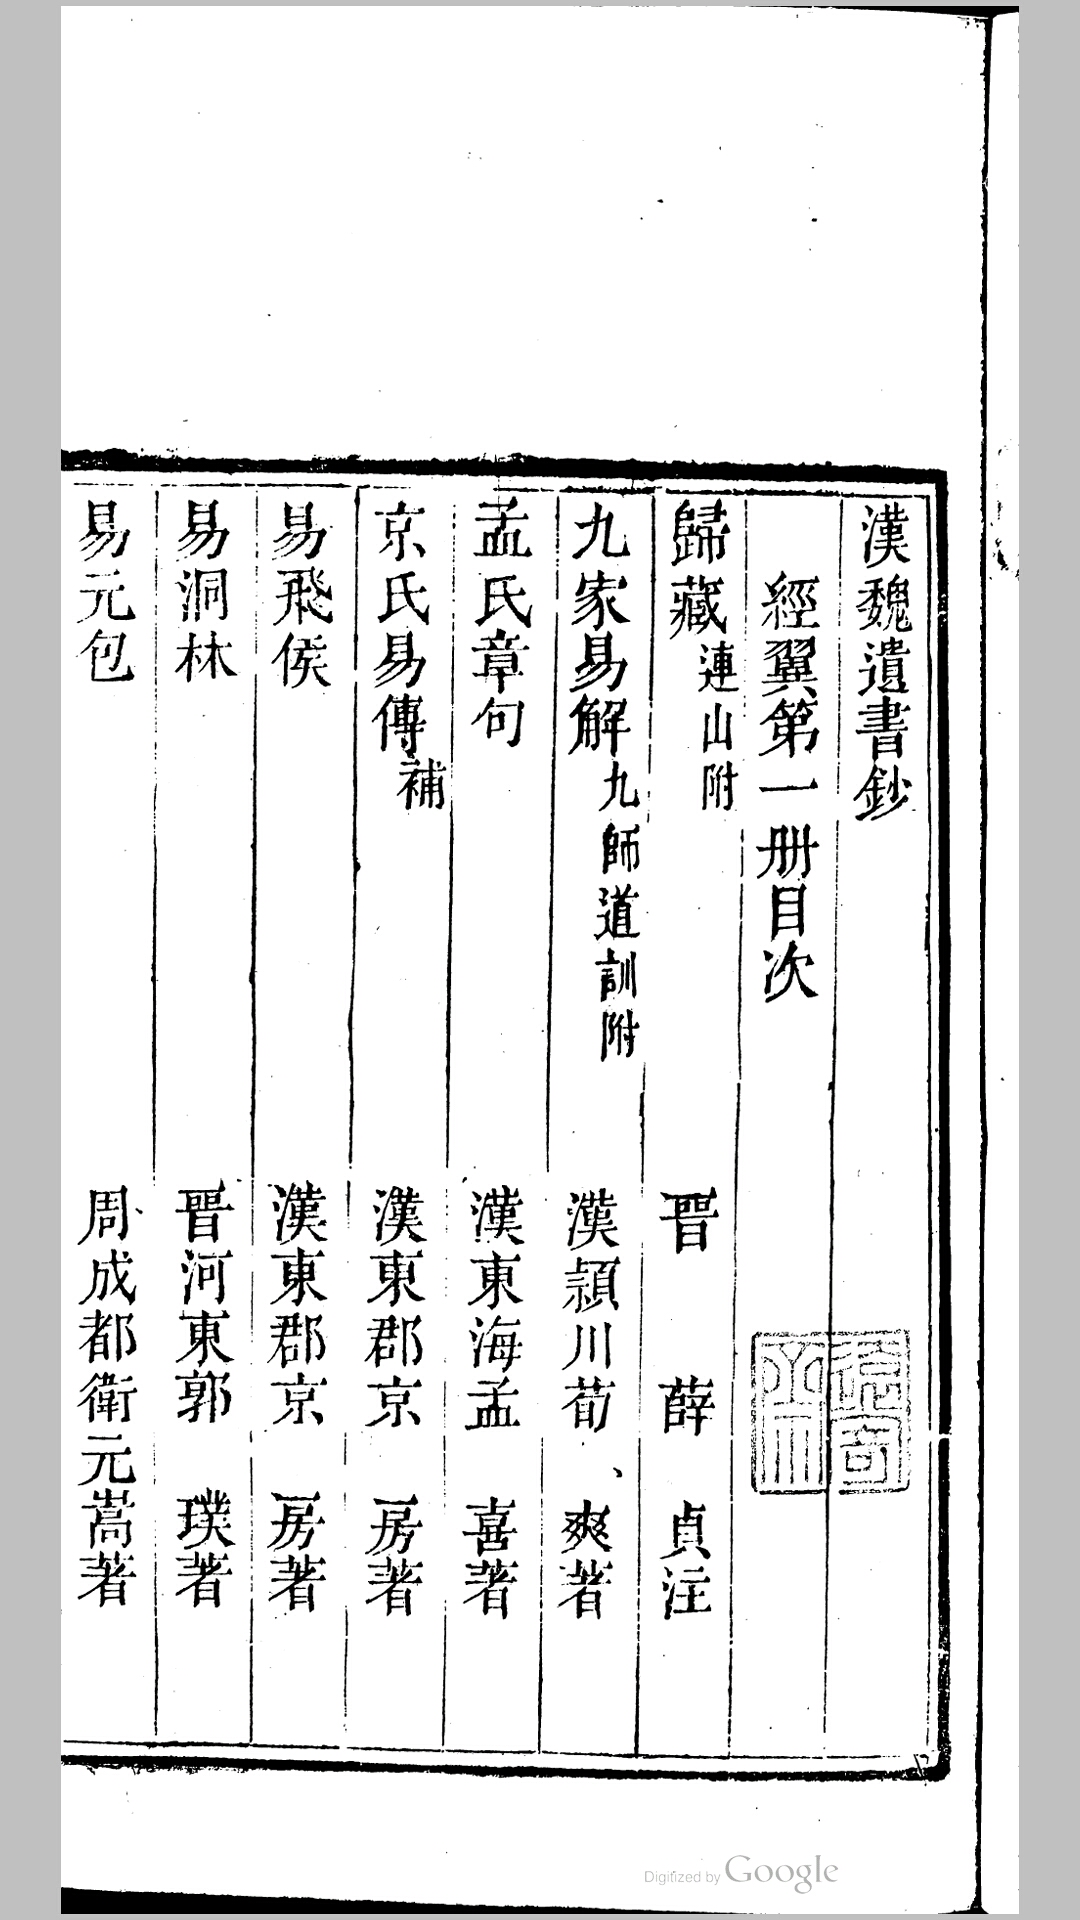 漢魏遺書鈔
經翼第一册目次
歸藏連山附 晉 薛 貞注
九家易解九師道訓附 漢潁川荀 爽著
孟氏章句 漢東海孟 喜著
京氏易傳補 漢東郡京 房著
易飛侯 漢東郡京 房著
易洞林 晉河東郭 璞著
易元包 周成都衛元嵩著
Digitized by Google